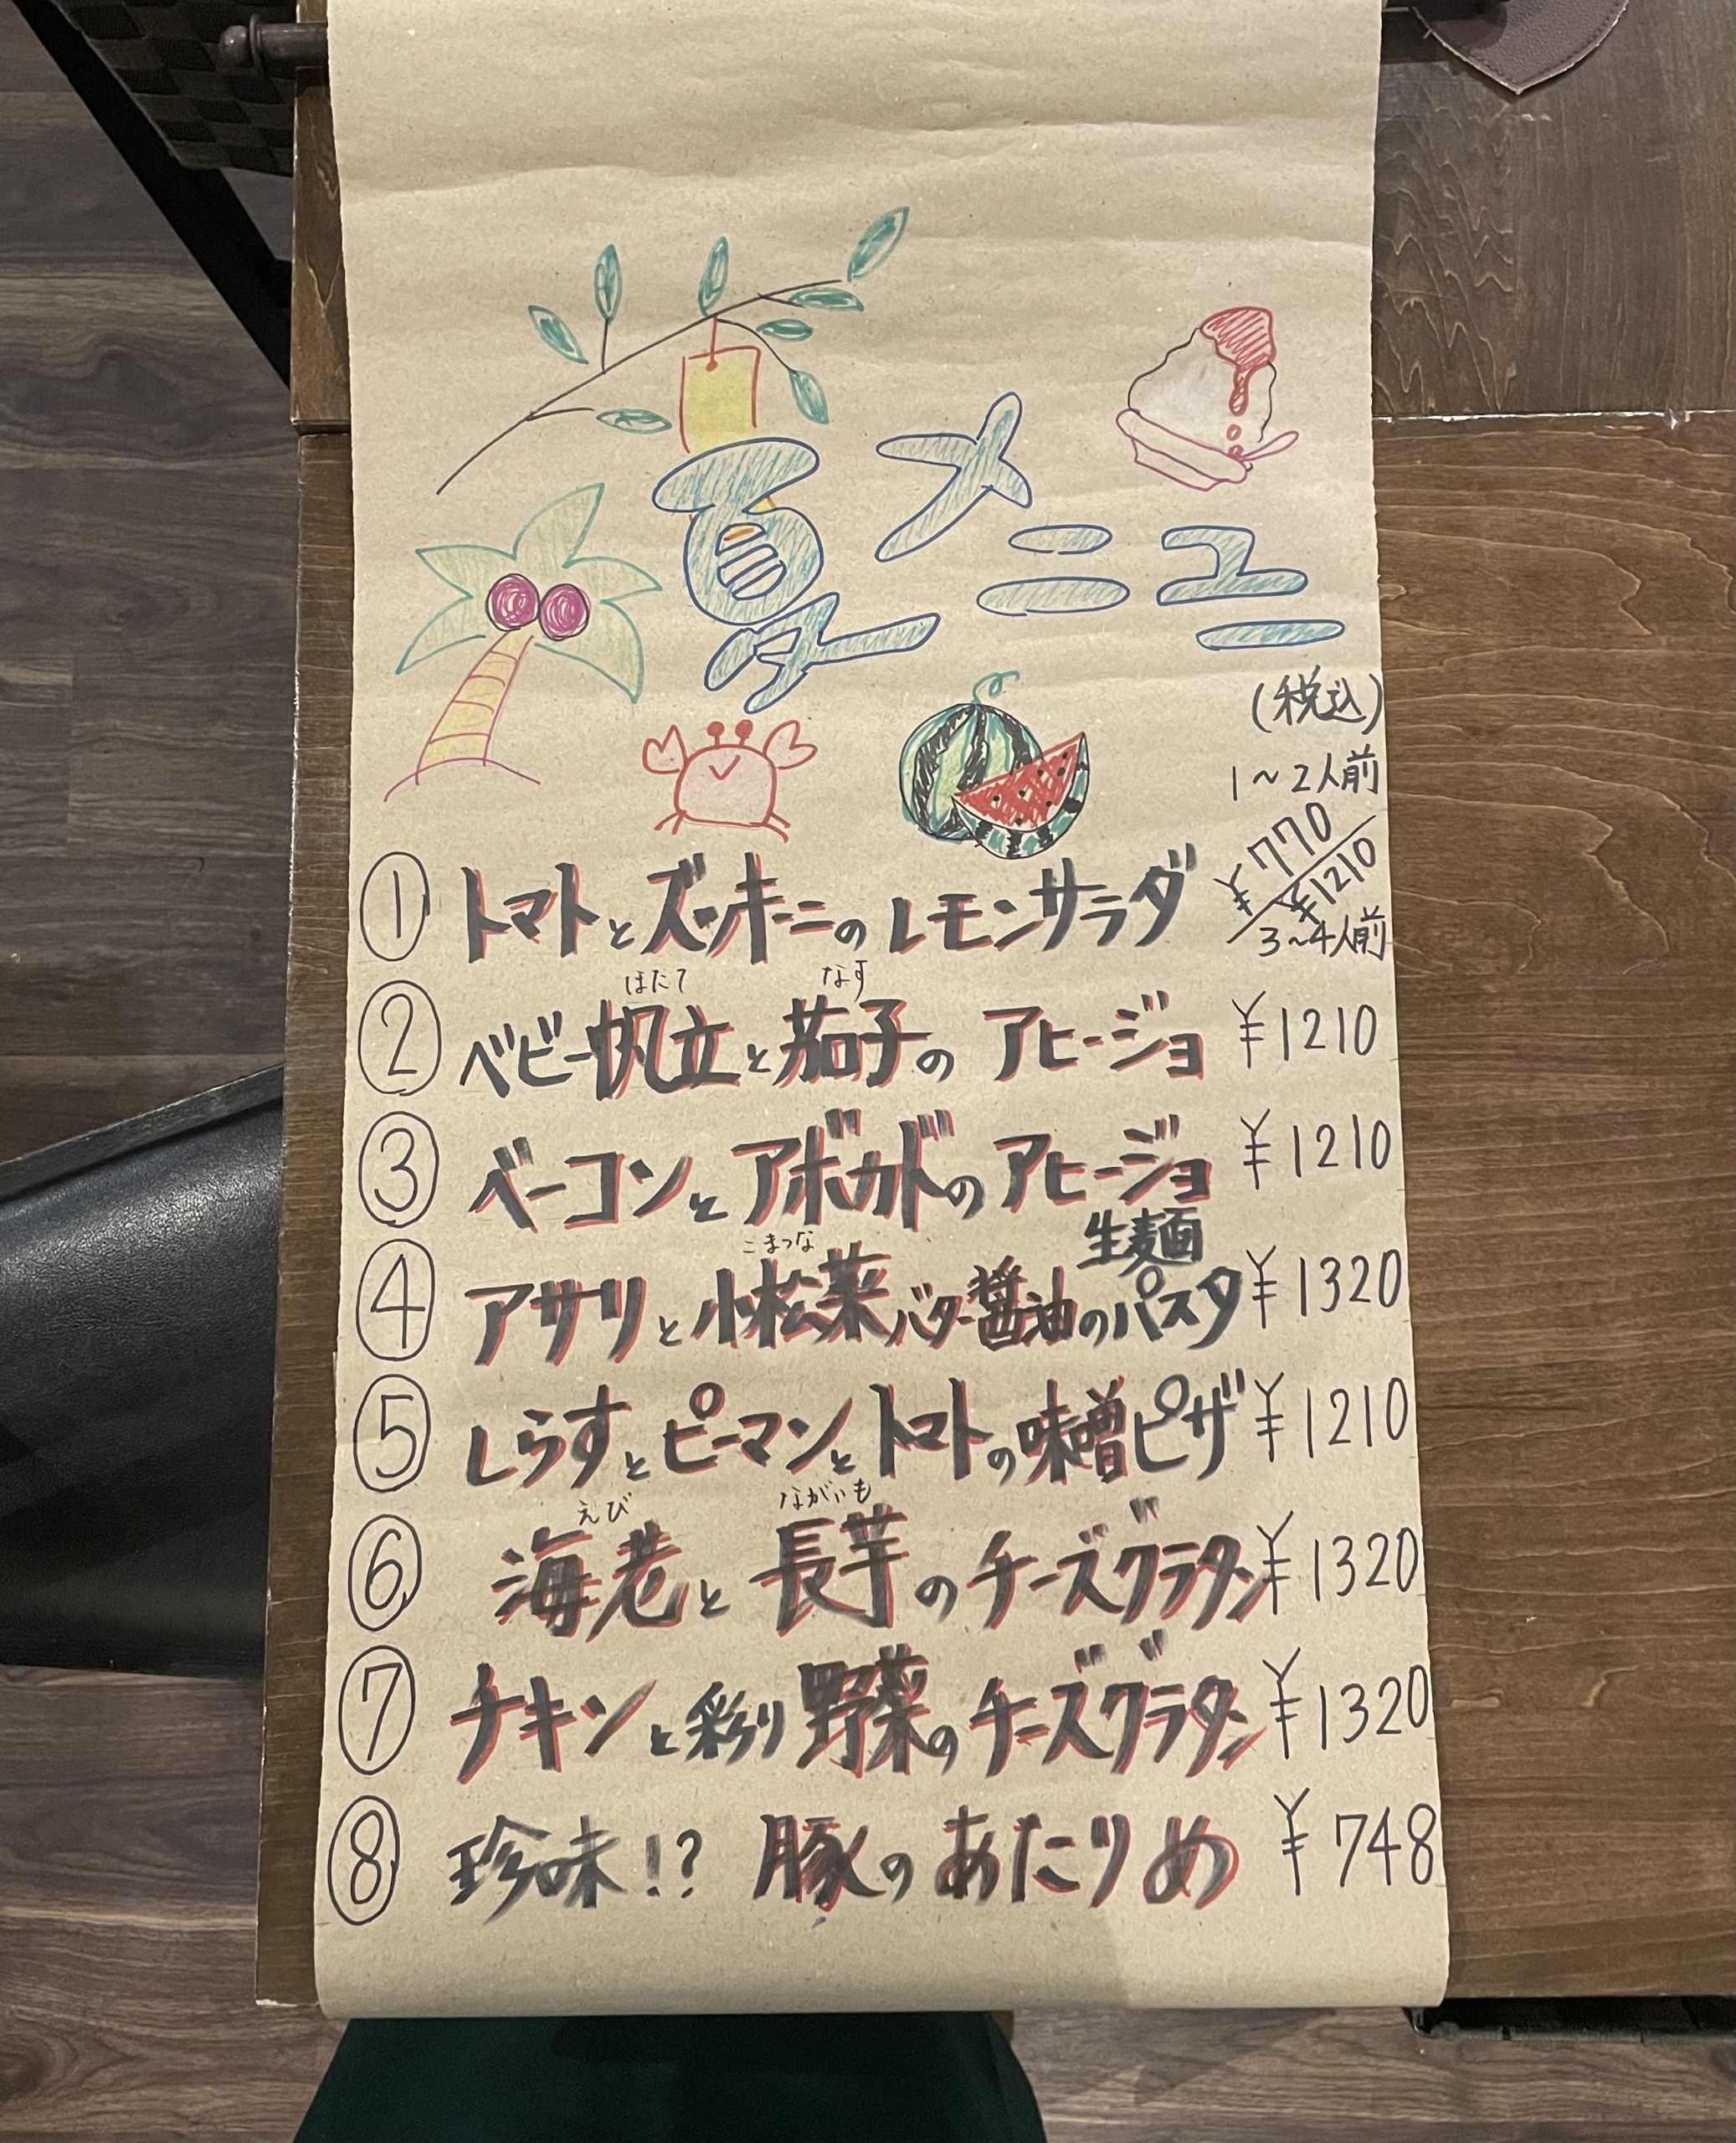 夏メニュー
(税込)
1～2人前
¥770
¥1210
3～4人前
① トマトとズッキーニのレモンサラダ
ほたて なす
② ベビー帆立と茄子のアヒージョ ¥1210
③ ベーコンとアボカドのアヒージョ ¥1210
こまつな 生麺
④ アサリと小松菜バター醤油のパスタ ¥1320
⑤ しらすとピーマンとトマトの味噌ピザ ¥1210
えび ながいも
⑥ 海老と長芋のチーズグラタン ¥1320
⑦ チキンと彩り野菜のチーズグラタン ¥1320
⑧ 珍味!? 豚のあたりめ ¥748